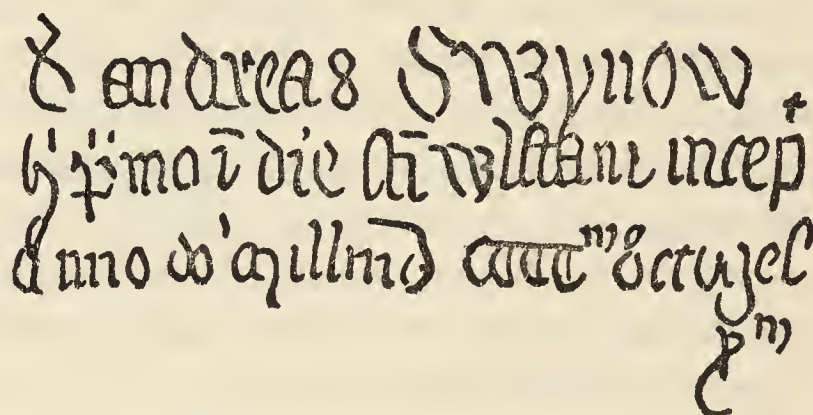 D andreas Swynow
h' p'mo ī die Sti wlstani incep
Anno do' Millmo ccccᵐᵒ octugel